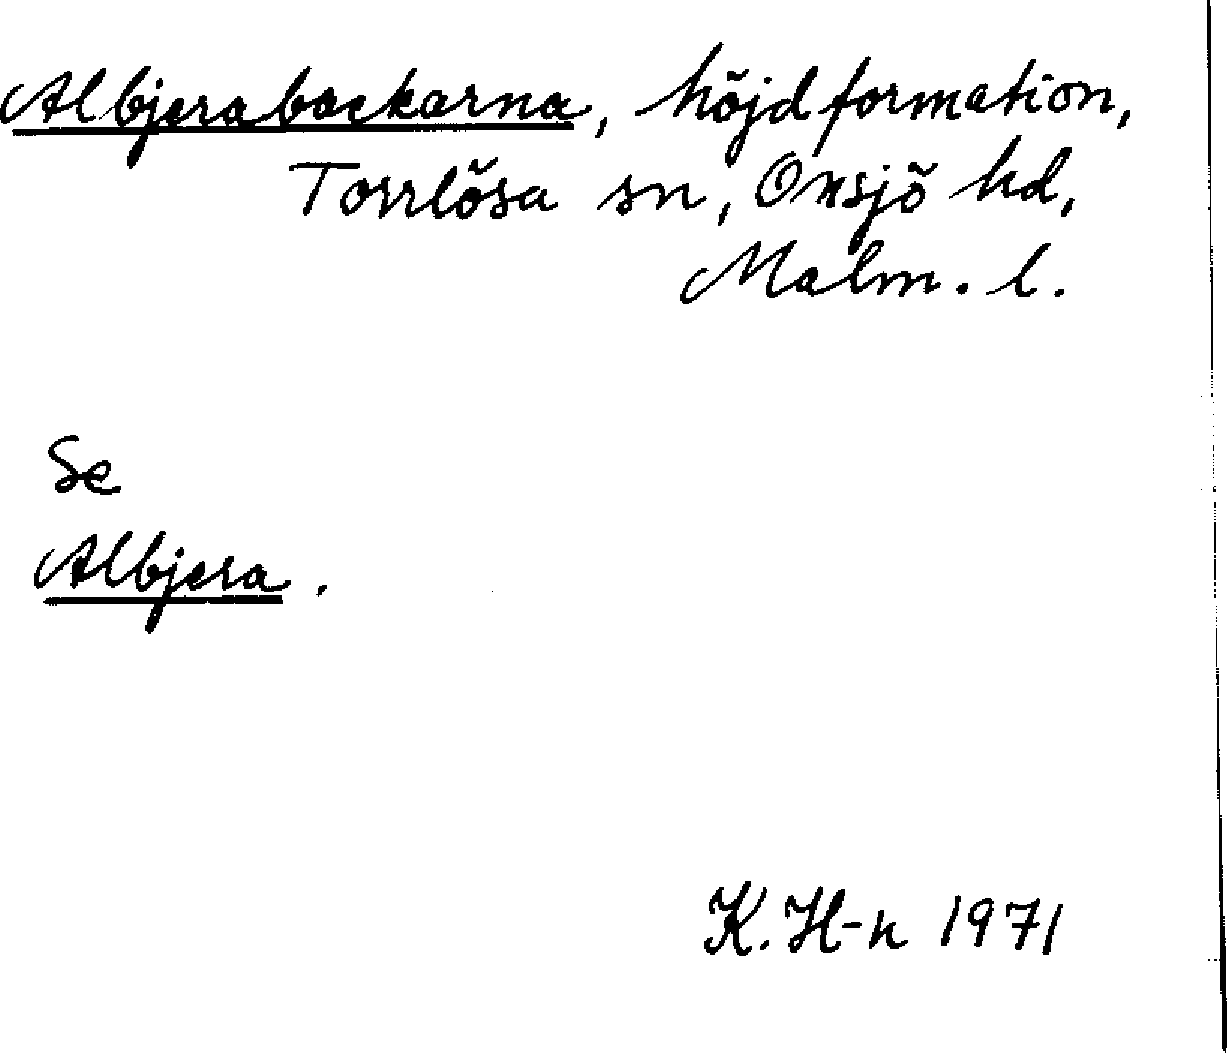 Albjerabackarna, höjdformation,
Torrlösa sn, Onsjö hd,
Malm. l.
Se
Albjera.
K. H-n 1971